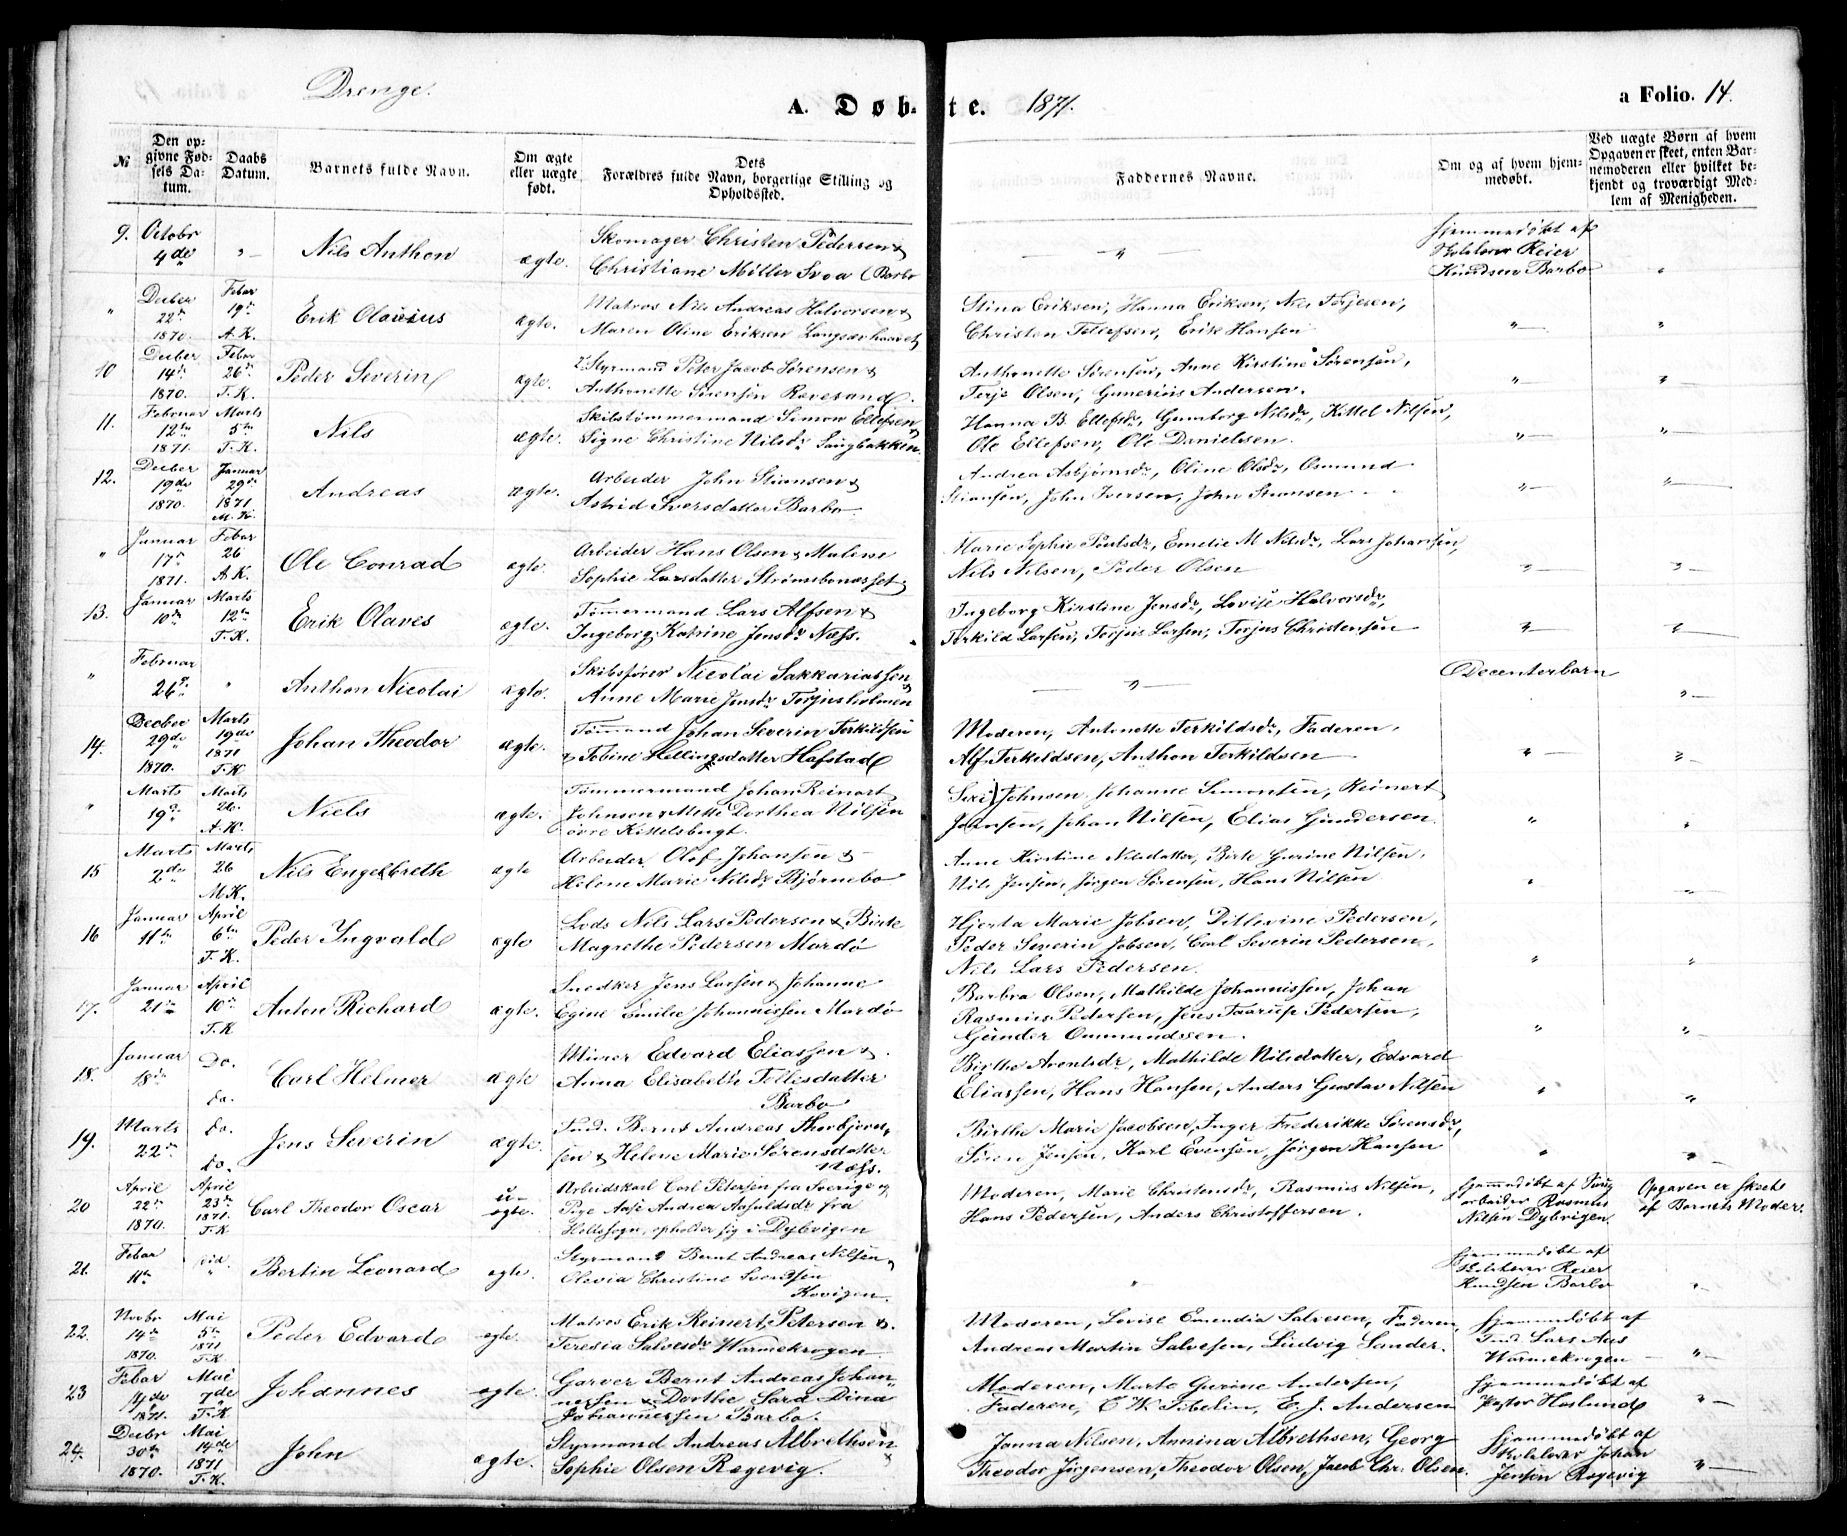 Drenge.
A. Døbte. 1871.
a Folio. 14.
№
Den opgivne Fødsels Datum.
Daabs Datum.
Barnets fulde Navn.
Om ægte eller uægte født.
Dets Forældres fulde Navn, borgerlige Stilling og Opholdssted.
Faddernes Navne.
Om og af hvem hjemmedøbt.
Ved uægte Børn af hvem Opgaven er skeet, enten Barnemoderen eller hvilket bekjendt og troværdigt Medlem af Menigheden.
9. Octobr 4de " Nils Anthon ægte. Skomager Christen Pedersen &
Christiane Møller Svoa (Barbo " hjemmedøbt af
Skolelærer Reier
Knudsen Barbo "
" Decber 22de 1870. Febar 19de A.K. Erik Olavius ægte. Matros Nils Andreas Halvorsen &
Maren Oline Eriksen Langsævhaavet Stina Eriksen, Hanna Eriksen, Nils Terjesen,
Christen Tellefsen, Erik Hansen " "
10 Decber 14de 1870. Febar 26de T.K. Peder Severin ægte. 2 Styrmand Peter Jacob Sørensen &
Anthonette Sørensen Revesand. Anthonette Sørensen, Anne Kirstine Sørensen,
Terje Olsen, Gunerius Andersen. " "
11. Februar 12te 1871. Marts 5te T.K. Nils ægte. Skibstømmermand Simon Ellefsen &
Signe Christine Nilsdr Saugbakken. Hanna B. Ellefsdr, Gunnborg Nilsdr, Kittel Nilsen,
Ole Ellefsen, Ole Danielsen. " "
12. Decber 19de 1870. Januar 29de 1871 M.K. Andreas ægte. Arbeider John Stiansen &
Astrid Iversdatter Barbo. Andrea Asbjørnsdr, Oline Olsdr, Osmund
Stiansen, John Iversen, John Stiansen " "
" Januar 17de 1871. Febar 26 A.K. Ole Conrad ægte. Arbeider Hans Olsen & Malene
Sophie Larsdatter Strømsbonesset Marie Sophie Poulsdr, Emelie M Nilsdr, Lars Johansen,
Nils Nilsen, Peder Olsen " "
13. Januar 10de Marts 12te T.K. Erik Olaves ægte. Tømermand Lars Alfsen &
Ingeborg Katrine Jensdr Næss. Ingeborg Kirstine Jensdr, Lovise Halvorsdr,
Terkild Larsen, Terjus Larsen, Terjus Christensen " "
" Februar 26de " Anthon Nicolai ægte. Skibsfører Nicolai Sakkariassen
Anne Marie Jensdr Torjusholmen " Decenterbarn "
14. Decber 29de 1870. Marts 19de 1871 T.K Johan Theodor ægte. Tømand Johan Severin Terkildsen
& Tobine Hellingsdatter Hafstad Moderen, Antonette Terkildsdr, Faderen,
Alf Terkildsen, Anthon Terkildsen " "
" Marts 19de Marts 26. A.K. Niels ægte. Tømmermand Johan Reinart
Johnsen & Mette Dorthea Nilsen
øvre Kittelsbugt. Siri Johnsen, Johanne Simonsen, Reinert
Johnsen, Johan Nilsen, Elias Gundersen. " "
15 Marts 2de Marts 26 M.K. Nils Engelbreth ægte Arbeider Olof Johansen &
Helene Marie Nilsdr Bjørnebo Anne Kirstine Nilsdatter, Birte Gurine Nilsen,
Nils Jensen, Jørgen Sørensen, Hans Nilsen " "
16 Januar 11te April 6te T.K. Peder Yngvald ægte Lods Nils Lars Pedersen & Birte
Magrethe Pedersen Mardø Hjerta Marie Jobsen, Ditlevine Pedersen,
Peder Severin Jobsen, Carl Severin Pedersen,
Nils Lars Pedersen. " "
17. Januar 21de April 10de T.K Anton Richard ægte. Snedker Jens Larsen & Johanne
Egine Emilie Johannissen Mardø Barbra Olsen, Mathilde Johannissen, Johan
Rasmus Pedersen, Jens Taarup Pedersen,
Gunder Onmundssen. " "
18. Januar 18de Do. do. Carl Helmer ægte Minør Edvard Eliassen &
Anna Elisabeth Tollisdatter
Barbo Birthe Arentsdr, Mathilde Nilsdatter, Edvard
Eliassen, Hans Hansen, Anders Gustav Nilsen " "
19. Marts 22de do. do. Jens Severin ægte. Tund. Bernt Andreas Thorbjørn-
sen & Helene Marie Sørensdatter
Næss. Birthe Marie Jacobsen, Inger Frederikke Sørensdr,
Søren Jensen, Karl Evensen, Jørgen Hansen " "
20 April 22de 1870. April 23de 1871. T.K Carl Theodor Oscar u-ægte. Arbeidskarl Carl Petersen fra Sverige og
Pige Aase Andrea Aasuldsdr fra
Holtesogn, opholder sig i Dybvigen Moderen, Marie Christensdr, Rasmus Nilsen,
Hans Pedersen, Anders Christoffersen. hjemmedøbt af
arbeider Rasmus
Nilsen Dybvigen. Opgaven er skeet
af Barnets Moder.
21. Febar 11te " Bertin Leonard ægte. Styrmand Bernt Andreas Nilsen
Olevia Christine Svendsen
Kovigen. " hjemmedøbt af
Skolelærer Reier
Knudsen Barbo "
22. Novbr 14de 1870. Mai 5te 1871 T.K. Peder Edvard ægte. Matros Erik Reinert Petersen &
Teresia Salvesdr Warmekrogen Moderen, Lovise Salvesen, Faderen,
Andreas Martin Salvesen, Ludvig Sander. hjemmedøbt af
Tund. Lars Aas
Warmekrogen "
23 Febar 14de 1871. Mai 7de T.K Johannes ægte. Garver Bernt Andreas Johan-
nessen & Dorthe Sara Dina
Johannessen Barbo. Moderen, Marte Gurine Andersen,
Faderen, C W. Sibelin, E. J. Andersen hjemmedøbt af
Pastor Haslund "
24. Decbr 30te 1870. Mai 14de 1871 T.K. John ægte. Styrmand Andreas Albrethsen &
Sophie Olsen Rægevig. Janna Nilsen, Annina Albrethsen, Georg
Theodor Jørgensen, Theodor Olsen, Jacob Chr. Olsen. hjemmedøbt af
Skolelærer Johan
Jensen Rægevig "